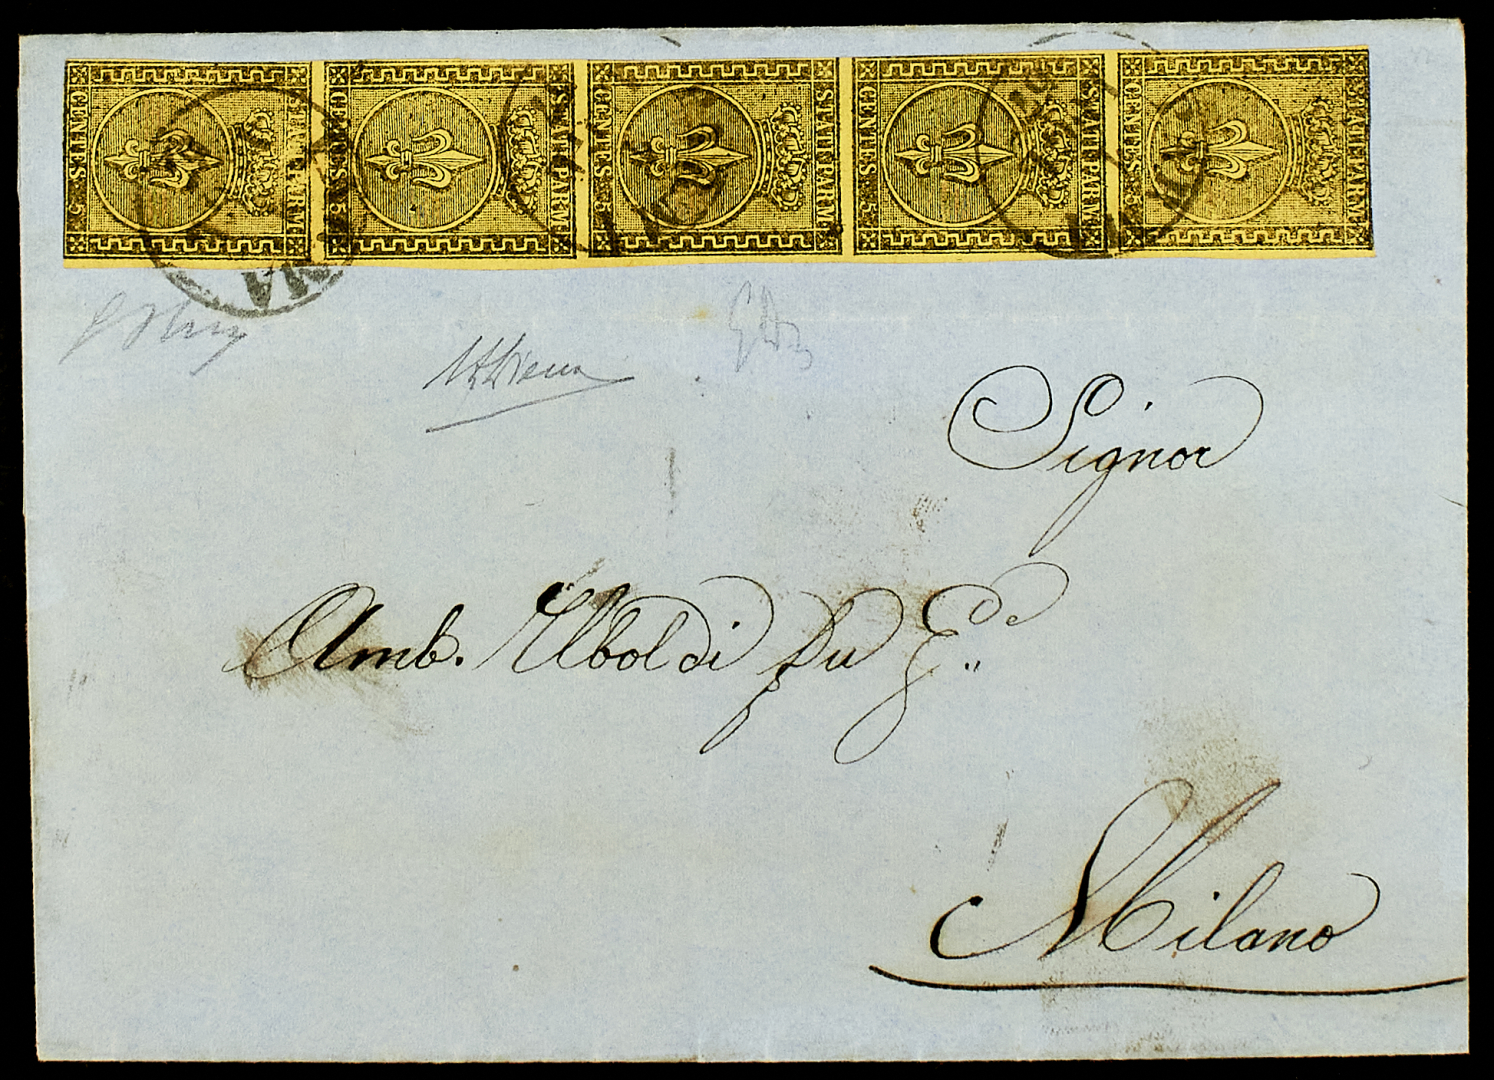 STATI PARM. CENTES. 5
STATI PARM. CENTES. 5
STATI PARM. CENTES. 5
STATI PARM. CENTES. 5
STATI PARM. CENTES. 5
ADiena
Signor
Amb. Uboldi fu G.e
Milano